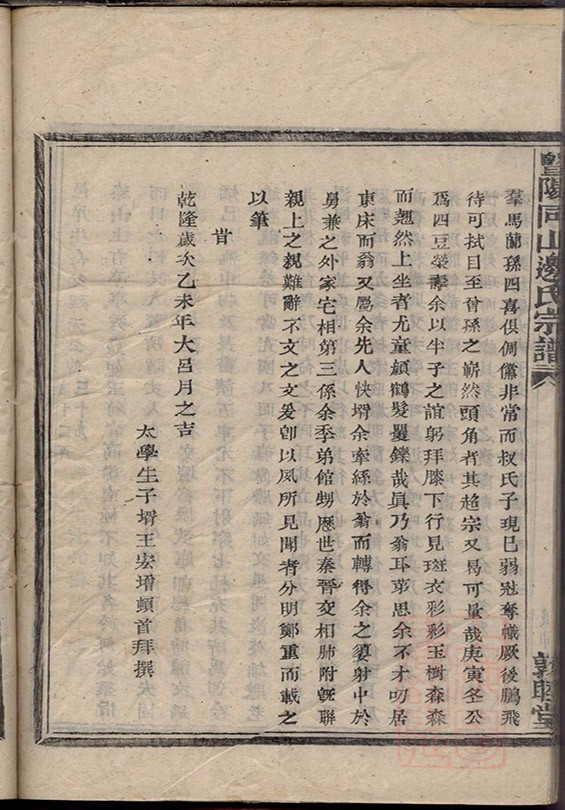 暨陽同山邊氏宗譜
敦睦堂
羣馬蘭孫四喜俱倜儻非常而叔氏子現已弱冠奪幟厥後鵬飛
待可拭目至曾孫之嶄然頭角者其趋宗又曷可量哉庚寅冬公
爲四豆榮壽余以半子之誼躬拜膝下行見斑衣彩彩玉樹森森
而翘然上坐者尤童顏鶴髮矍鑠哉眞乃翁耳第思余不才叨居
東床而翁又屬余先人快壻余牽絲於翁而轉得余之婆射中於
舅兼之外家宅相第三係余季弟館甥歷世秦晉交相肺附旣聯
親上之親難辭不文之文爰卽以夙所見聞者分明鄭重而載之
以筆
旹
乾隆歲次乙未年大呂月之吉
太學生子壻王宏增頓首拜撰